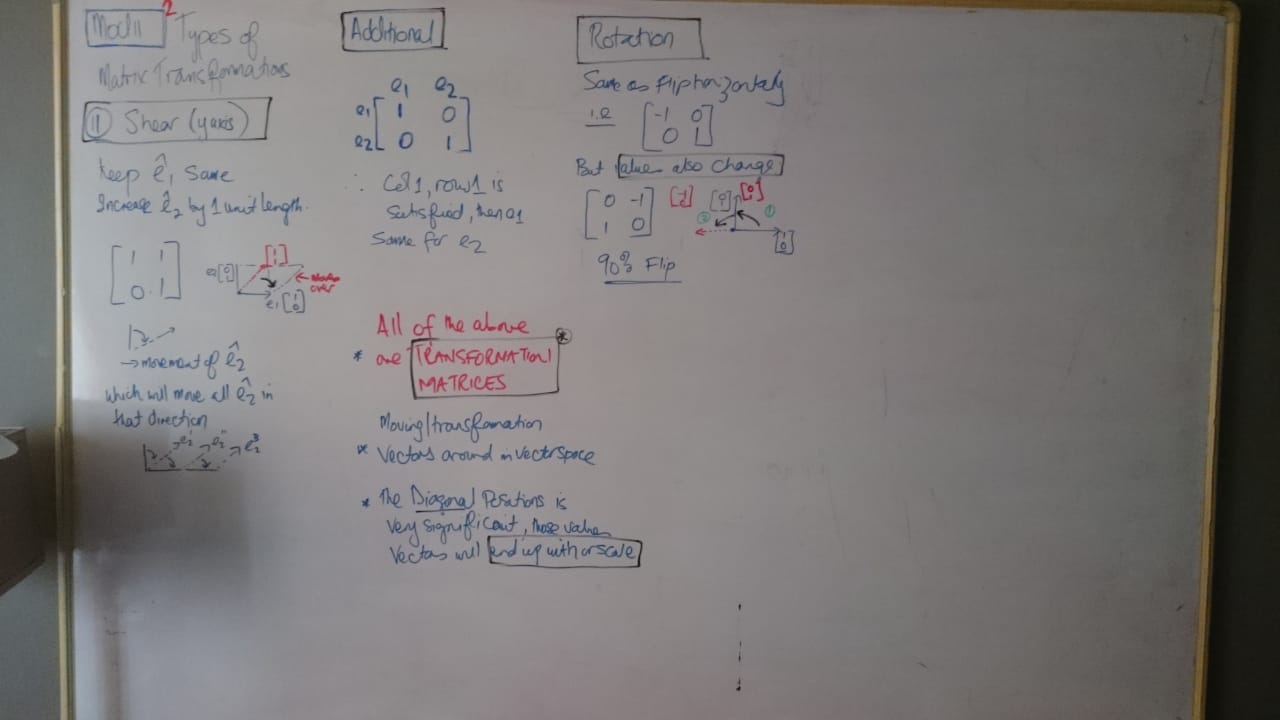 Mod 11 2 Types of
Matrix Transformations
11 Shear (y axis)
Keep ê1 Same
Increase ê2 by 1 unit length.
[1 1
0 1]
[1
1]
e2 [0
1]
e1 [1
0]
over
→ movement of ê2
which will move all ê2 in
that direction
Additional
e1 e2
e1 [1 0
e2 0 1]
∴ Col 1, row 1 is
Satisfied, then e1
Same for e2
All of the above
* are TRANSFORMATION *
MATRICES
Moving/transformation
* Vectors around in vector space
* The Diagonal Positions is
Very significant, those values
Vectors will end up with or scale
Rotation
Same as Flip horizontally
i.e [-1 0
0 1]
But values also change
[0 -1
1 0]
[-1
0]
[0
1]
[0
1]
2
1
[1
0]
90% Flip